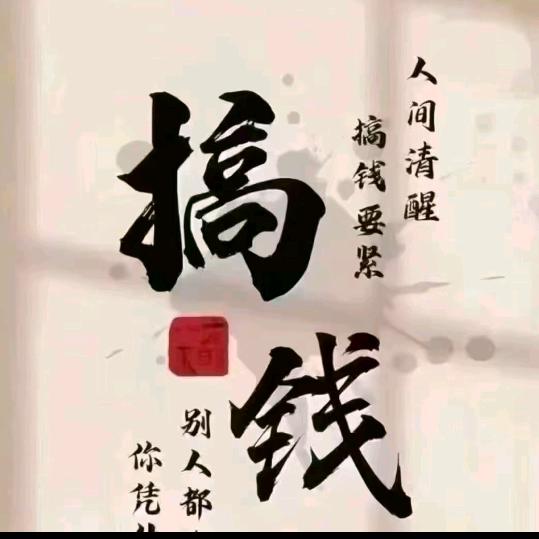 人间清醒
搞钱要紧
搞
钱
别人都
你凭